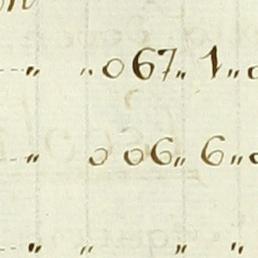 " " 067 " 1 " 0
" 0 06 " 6 " 0
" " " "